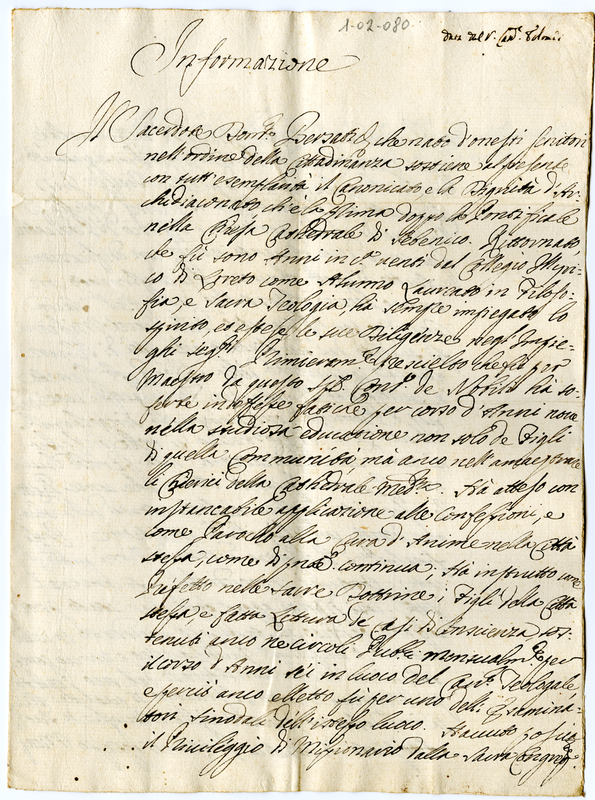 1-02-080.
data dal S. Card. Tolomei
Informazione
Il Sacerdote Dom.co Bersatich, che nato d'onesti Genitori
nell'ordine della Cittadinanza sostiene al presente
con tutt'esemplarità il Canonicato e la Dignità d'Ar-
chidiaconato, ch'è la prima doppo la Pontificale
nella Chiesa Cathedrale di Sebenico. Ritornato,
che fù sono Anni in c.a venti dal Collegio Illyri-
co di Loreto come Alunno Laureato in Filoso-
fia, e Sacra Teologia, hà sempre impiegato lo
spirito, et estese le sue Diligenze negl'Impie-
ghi seg.ti Primieram.te Prescielto che fù per
Maestro da questo Sp. Con.o de Nobili hà so-
ferte indefesse fatiche per corso d'Anni nove
nella studiosa educazione non solo de Figli
di quella Communità mà anco nell'amaestrare
li Chierici della Cathedrale med.ma. Hà atteso con
instancabile applicazione alle Confessioni, e
come Parocho alla Cura d'Anime nella Città
stessa, come di pnte continua; Hà instrutto come
Prefetto nelle Sacre Dottrine i Figli della Città
stessa, e fatta Lettura de Casi di Conscienza sos-
tenuti anco ne Circoli Publi mensualm.te per
il corso d'Anni sei in luoco del Can.co Teologale
e perciò anco elletto fù per uno delli Examina-
tori sinodali dell'istesso luoco. Havuto poscia
il Privileggio di Missionario dalla Sacra Congreg.